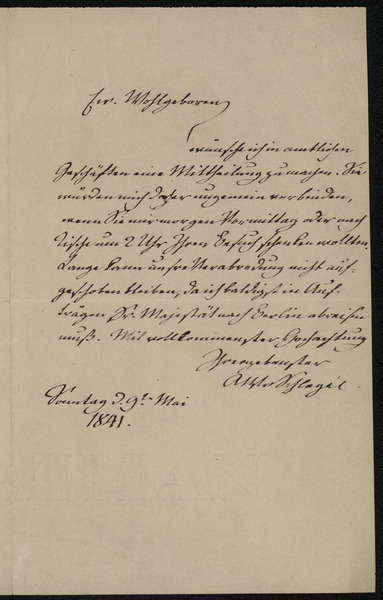 Ew. Wohlgeboren
wünsche ich in amtlichen
Geschäften eine Mittheilung zu machen. Sie
würden mich daher ungemein verbinden,
wenn Sie mir morgen Vormittag oder nach
Tische um 2 Uhr Ihren Besuch schenken wollten.
Lange kann unsre Verabredung nicht auf-
geschoben bleiben, da ich baldigst in Auf-
trägen Sr. Majestät nach Berlin abreisen
muß. Mit vollkommenster Hochachtung
Ihr ergebenster
AWvSchlegel.
Sonntag d. 9ten Mai
1841.